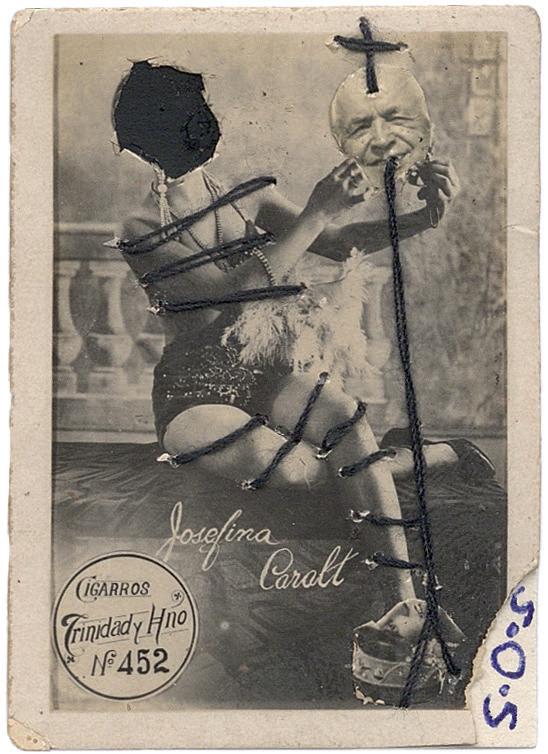 Josefina
Caralt
CIGARROS
Trinidad y Hno
Nº 452
S.O.S